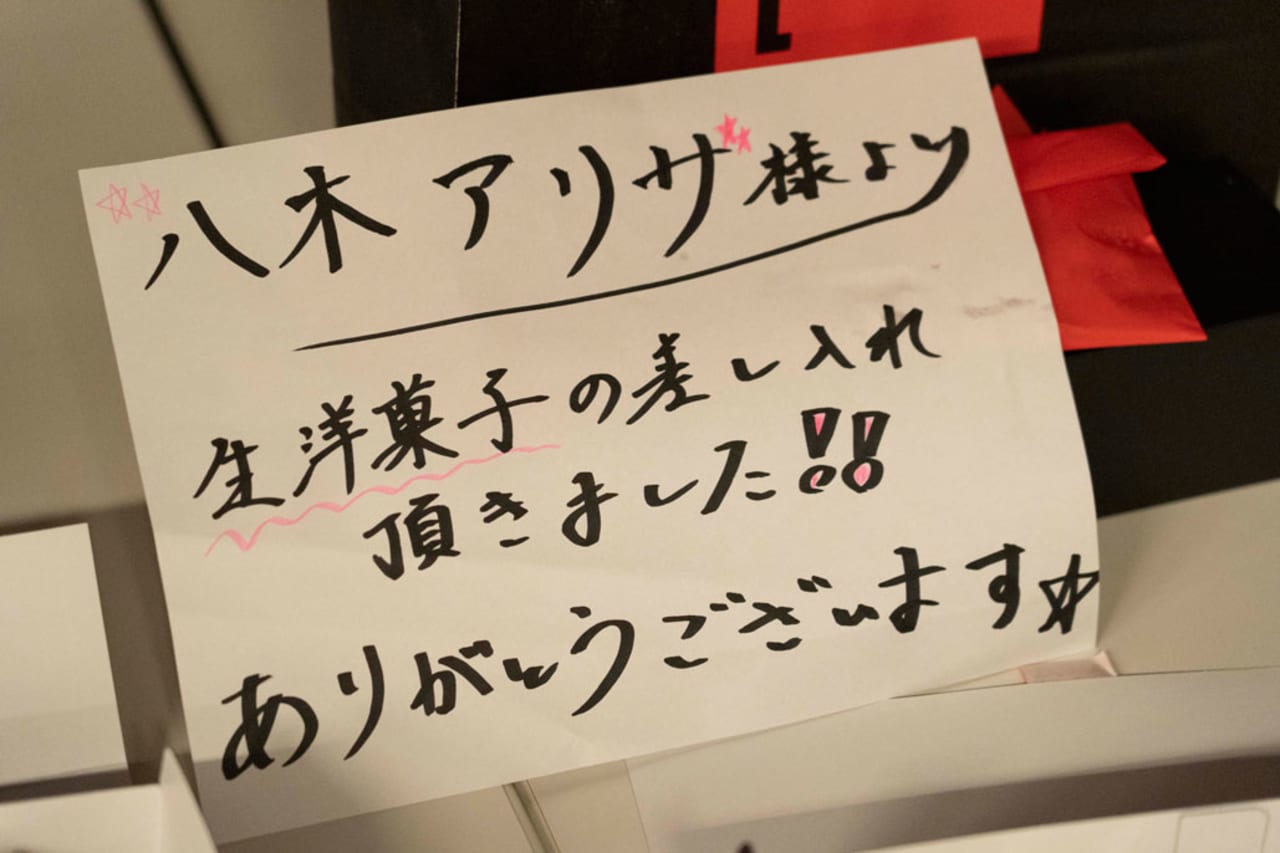 ☆☆八木 アリサ★★様より
生洋菓子の差し入れ
頂きました!!
ありがとうございます☆